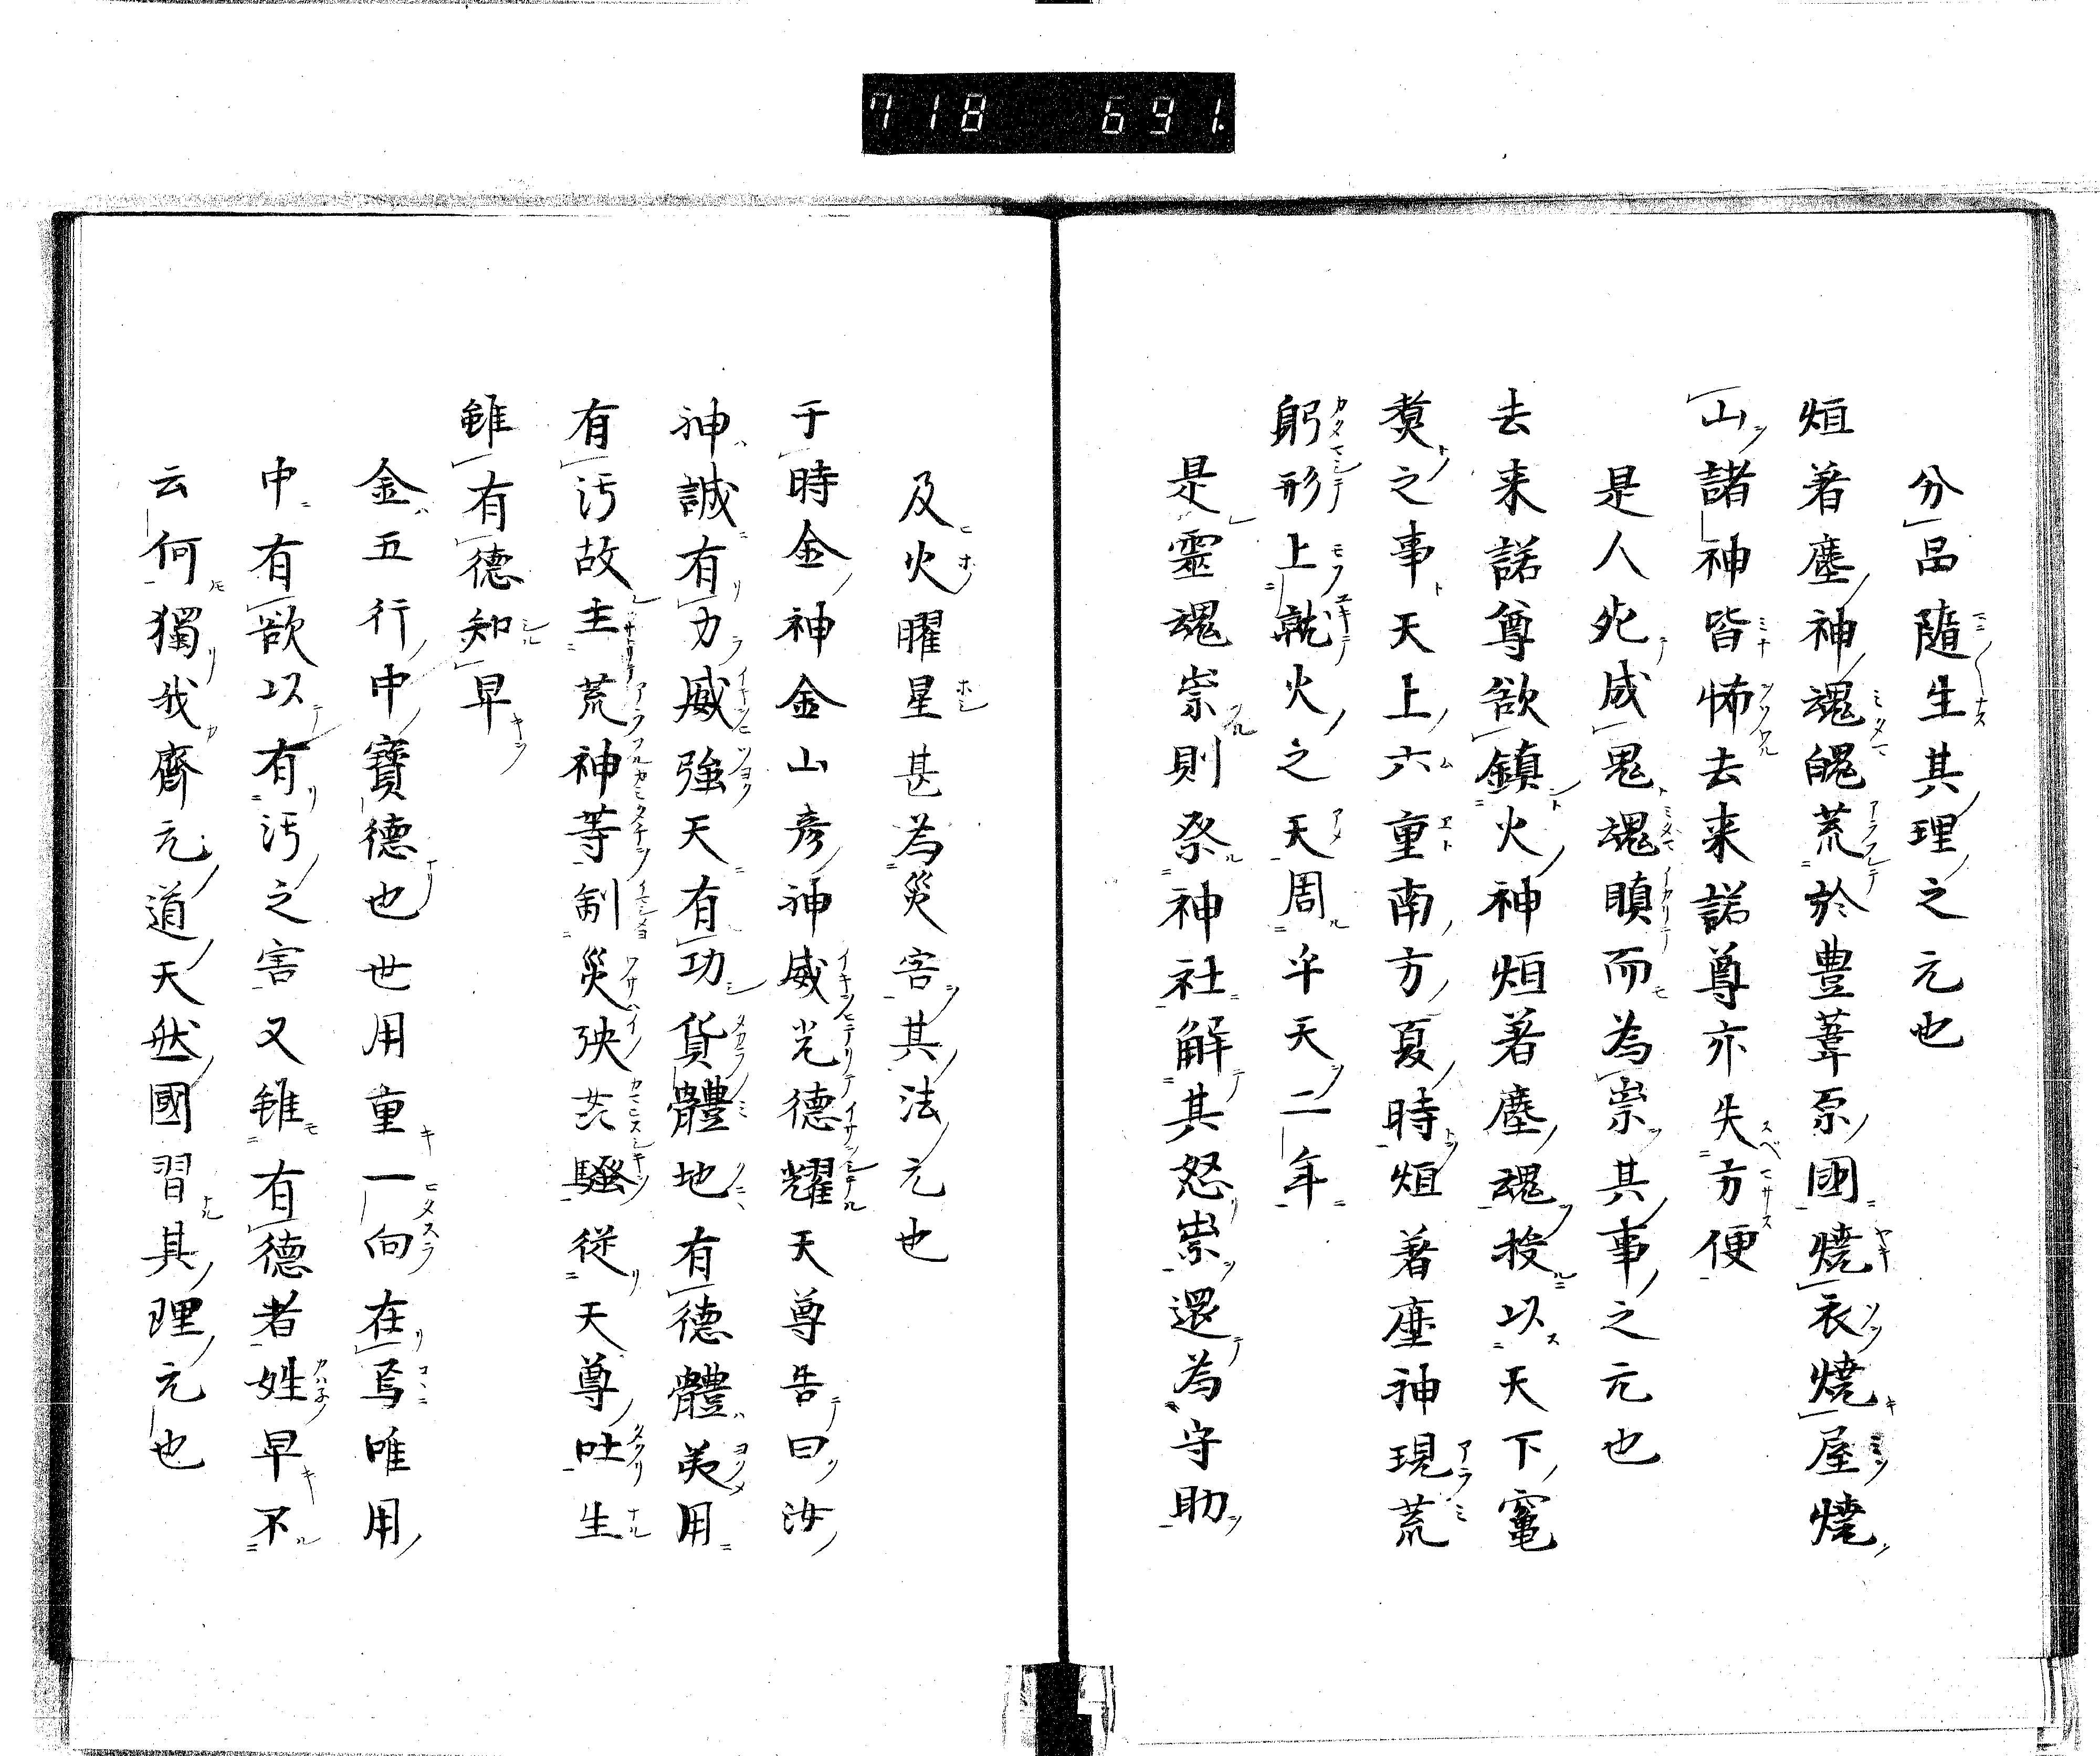 718 691.
分品隨生其理之元也
烜著塵神魂魄荒於豊葦原國燒衣燒屋燒
山諸神皆怖去来諾尊亦失方便
是人死成鬼魂瞋而為祟其事之元也
去来諾尊欲鎮火神烜著塵魂投以天下竃
糞之事天上六重南方夏時烜著塵神現荒
躬形上就火之天周卒天二年
是靈魂祟則祭神社解其怒祟還為守助
及火曜星甚為災害其法元也
于時金神金山彦神威光德耀天尊告曰汝
神誠有力威強天有功貨體地有德體美用
有汚故主荒神等制災殃灾騷從天尊吐生
雖有德知早
金五行中寶德也世用重一向在焉唯用
中有欲以有汚之害又雖有德者姓早不
云何獨我齊元道天然國習其理元也